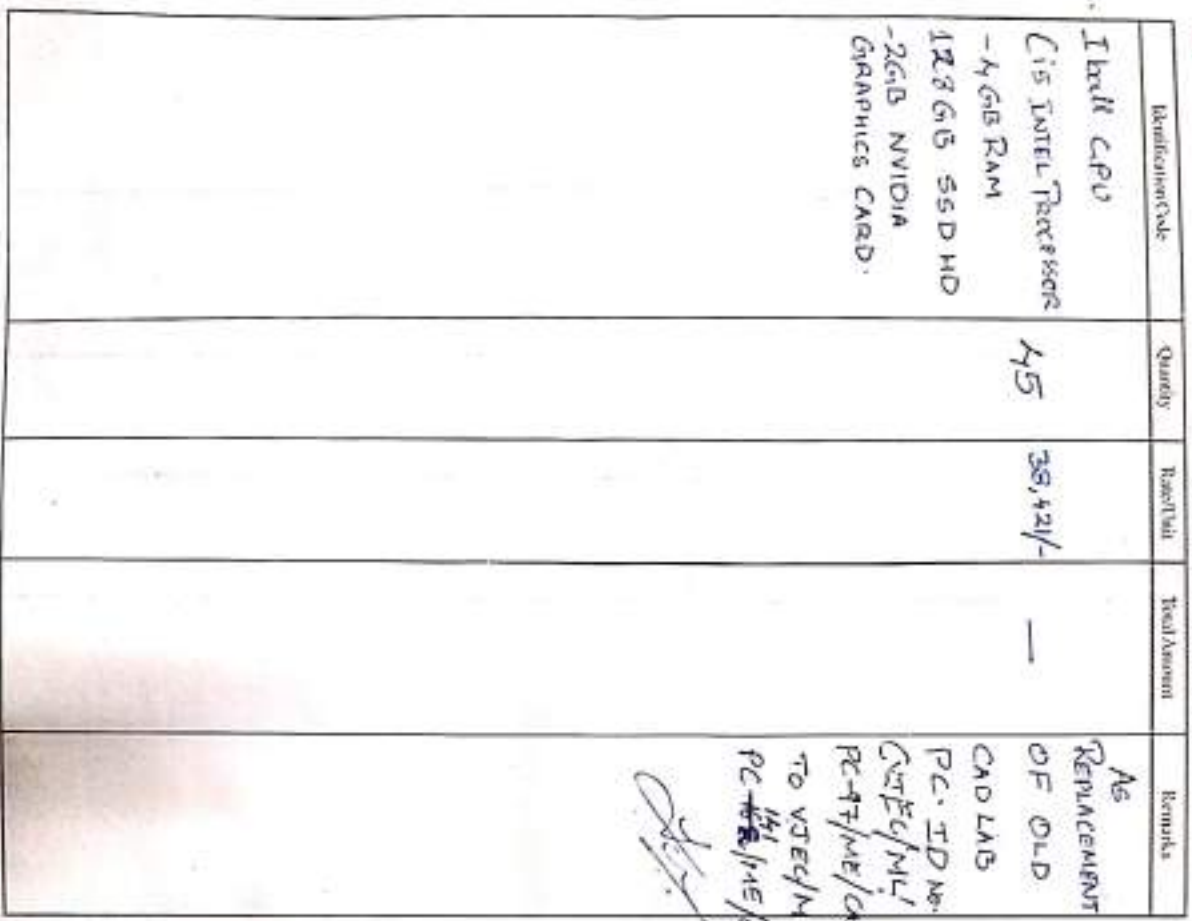 Identification Code
Quantity
Rate/Unit
Total Amount
Remarks
Iball CPU
(i5 INTEL PROCESSOR
-4 GB RAM
128 GB SSD HD
-2GB NVIDIA
GRAPHICS CARD.
45
38,421/-
—
AS
REPLACEMENT
OF OLD
CAD LAB
PC. ID No.
PC-97/ME/CA
TO VJEC/M
141
PC- /ME/